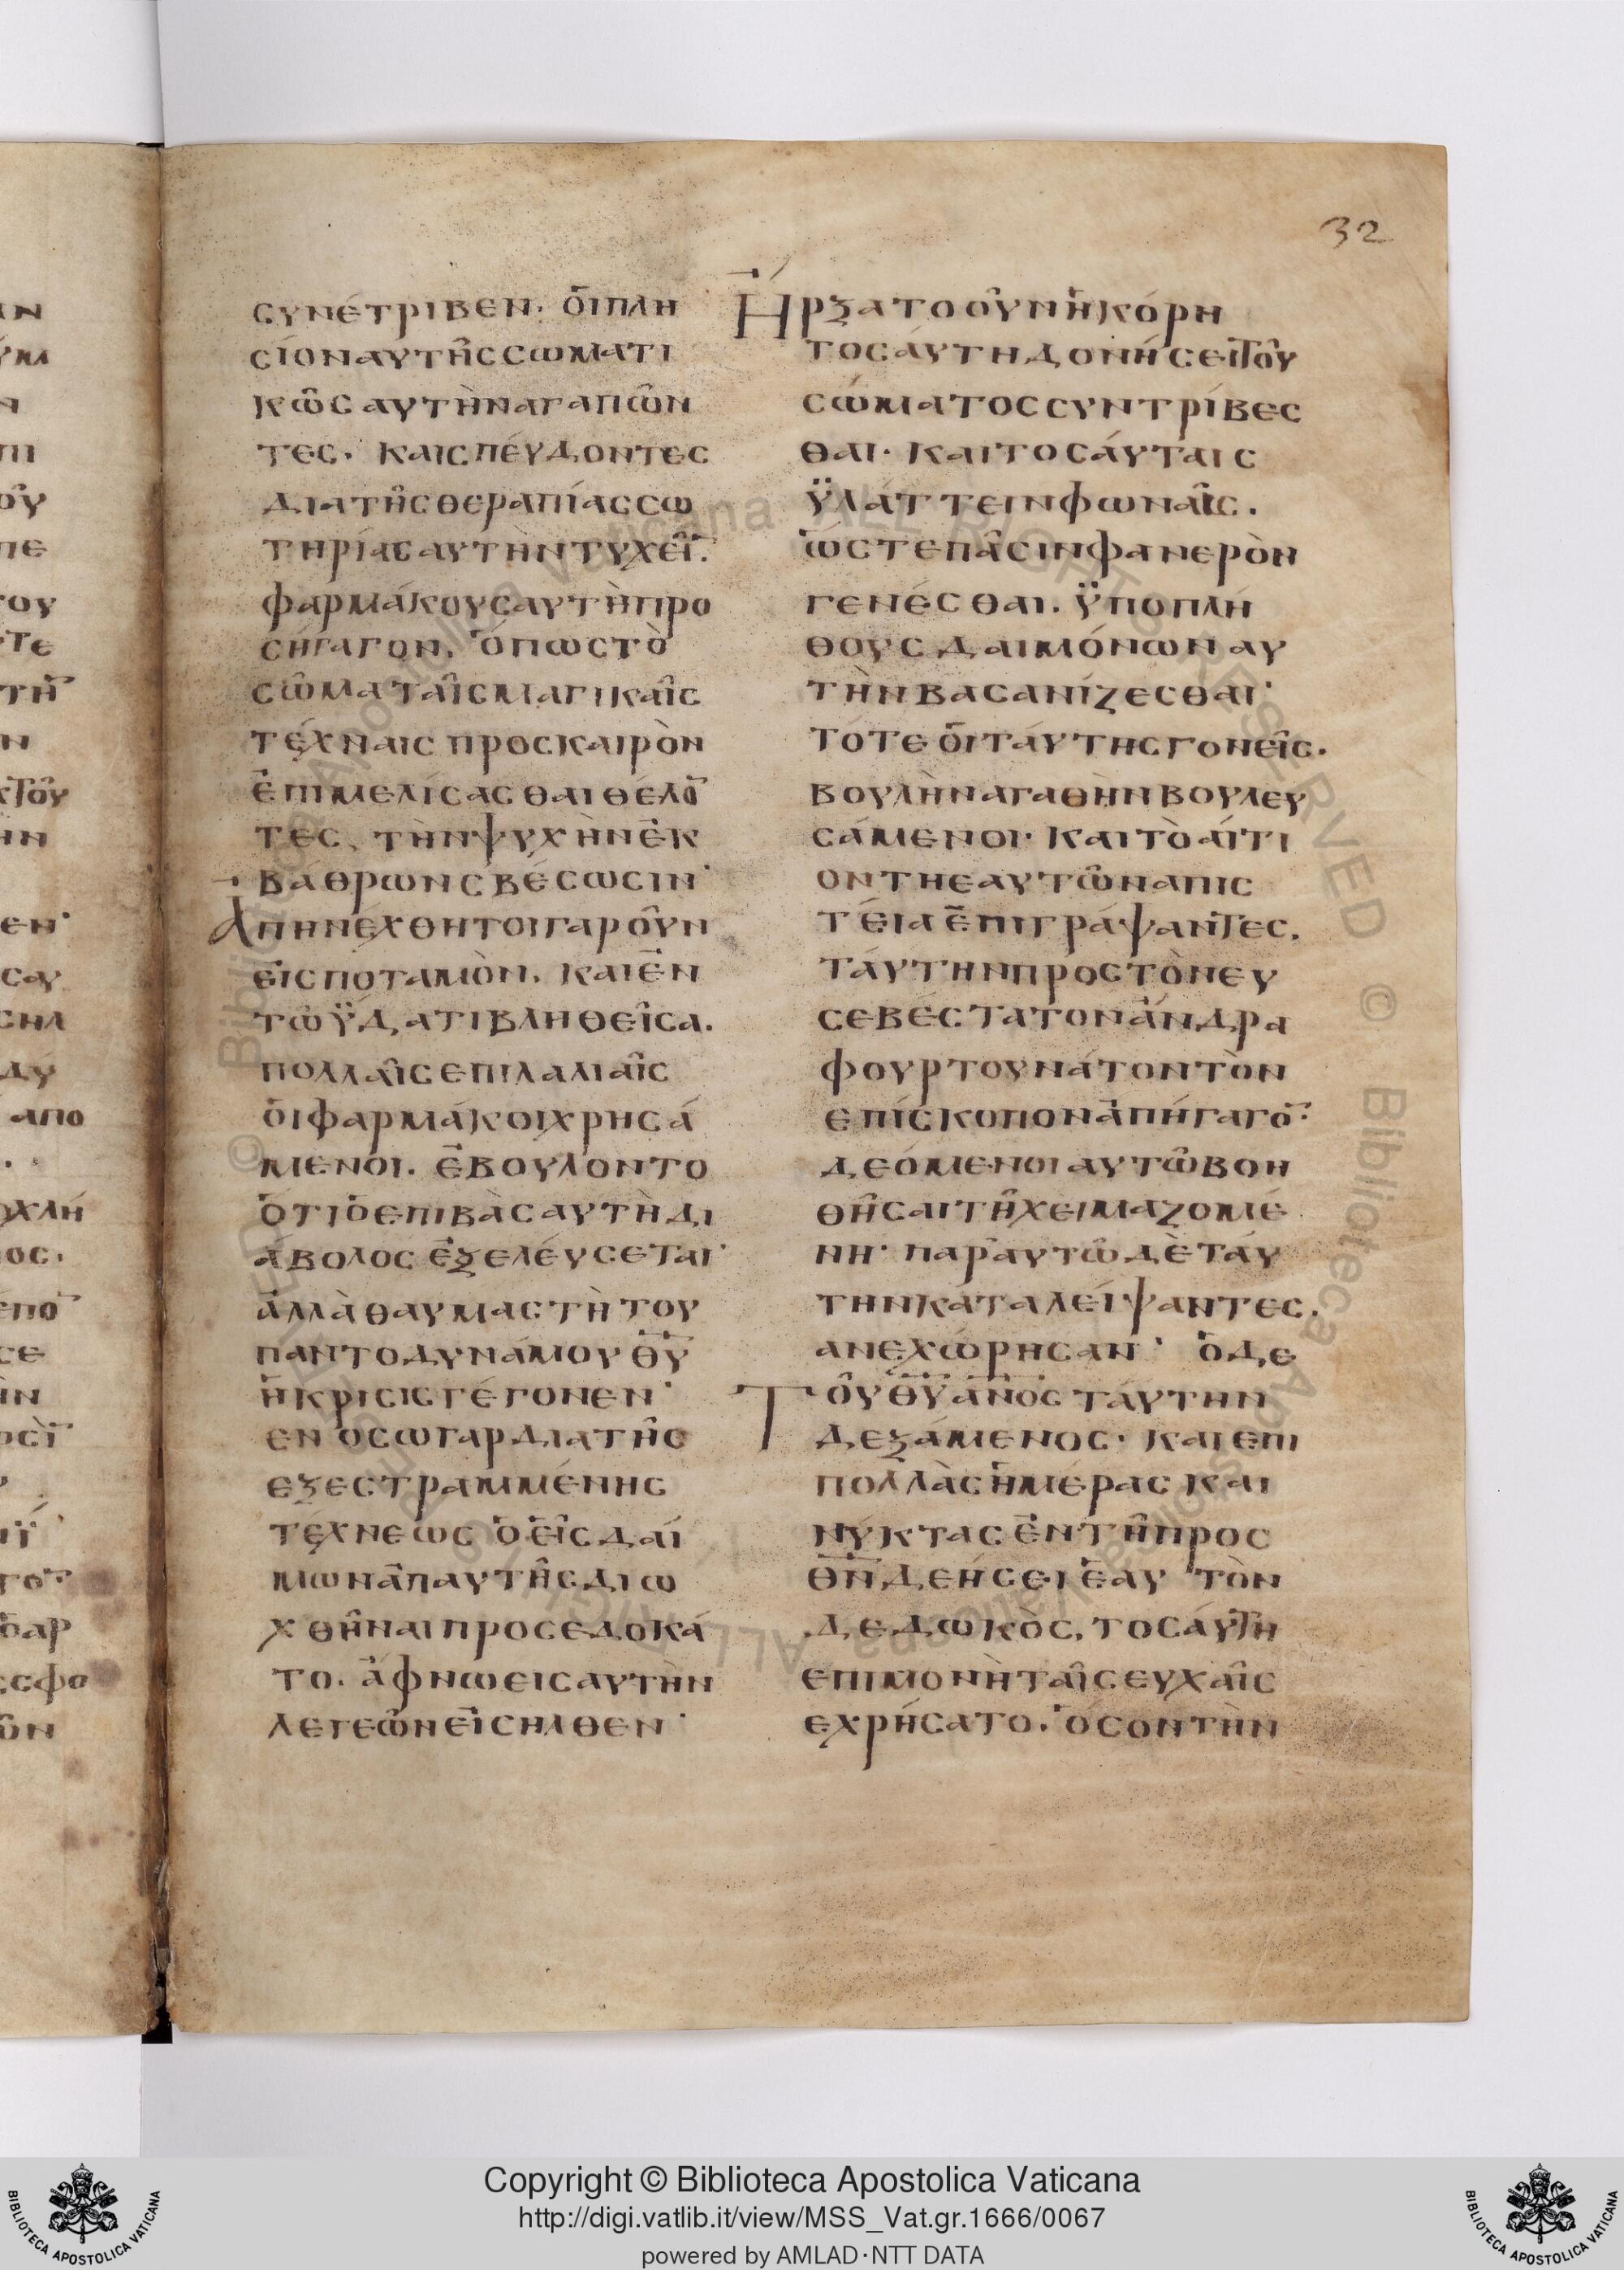 32
ϲυνέτριβεν· ὁι πλη
ϲίον αυτῆϲ ϲωματι
κῶϲ αυτὴν αγαπῶν
τεϲ· και ϲπέυδοντεϲ
δια τῆϲ θεραπίαϲ ϲω
τηρίαϲ αυτὴν τυχεῖ̅·
φαρμάκουϲ αυτὴ προ
ϲήγαγον, ὅπωϲ τὸ
ϲῶμα ταῖϲ μαγικαῖϲ
τέχναιϲ προϲκαιρὸν
ἐπιμελίϲαϲθαι θέλο̅
τεϲ, τὴν ψυχὴν ἐκ
βάθρων ϲβέϲωϲιν·
Απηνέχθη τοιγαροῦν
εἰϲ ποταμὸν, και ἐν
τῶ ὕδατι βληθεῖϲα.
πολλαῖϲ επιλαλιαῖϲ
ὁι φαρμάκοι χρηϲά
μενοι. ἐβουλοντο
ὅτι ὁ επιβὰϲ αυτὴ δι
άβολοϲ ἐξελέυϲεται·
ἀλλὰ θαυμαϲτὴ του
παντοδυνάμου θ̅υ̅
ἡ κριϲιϲ γέγονεν·
εν ὅϲω γαρ δια τῆϲ
εξεϲτραμμένηϲ
τέχνεωϲ ὁ εἷϲ δαί
μων ἀπ αυτῆϲ διω
χθῆναι προϲεδοκά
το. ἄφνω ειϲ αυτὴν
λεγεῶν εἰϲηλθεν·
Ἤρξατο οῦν ἡ κόρη
τοϲάυτη δονήϲει τοῦ
ϲώματοϲ ϲυντρίβεϲ
θαι· και τοϲάυταιϲ
ϋλάττειν φωναῖϲ.
ὥϲτε πᾶϲιν φανερὸν
γενέϲθαι. ϋπο πλή
θουϲ δαιμόνων αυ
τὴν βαϲανίζεϲθαι·
τότε ὁι τάυτηϲ γονεῖϲ.
βουλὴν αγαθὴν βουλευ
ϲάμενοι· και τὸ αίτι
ον τη εαυτῶν απιϲ
τέια ἐπιγράψαντεϲ,
τάυτην πρὸϲ τὸν ευ
ϲεβέϲτατον ἄνδρα
φουρτουνάτον τὸν
επίϲκοπον ἀπήγαγο̅·
δεόμενοι αυτῶ βοη
θῆϲαι τῆ χειμαζομέ
νη· παρ αυτῶ δὲ τάυ
την καταλείψαντεϲ.
ανεχώρηϲαν· ὁ δε
Τοῦ θ̅υ̅ α̅ν̅οϲ τάυτην
δεξάμενοϲ· και επι
πολλὰϲ ἡμέραϲ και
νύκταϲ ἐν τῆ προϲ
θ̅ν̅ δεήϲει ἑαυτὸν
δεδωκὸϲ, τοϲάυτη
επιμονὴ ταῖϲ ευχαῖϲ
εχρήϲατο. ὅϲον τὴν
Copyright © Biblioteca Apostolica Vaticana
http://digi.vatlib.it/view/MSS_Vat.gr.1666/0067
powered by AMLAD·NTT DATA